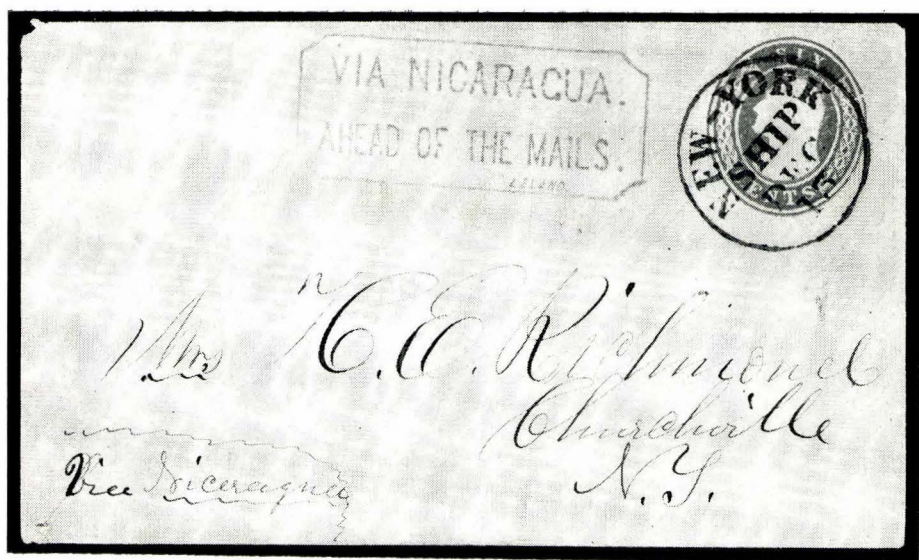 VIA NICARAGUA.
AHEAD OF THE MAILS.
LELAND.
SIX
CENTS
NEW-YORK
SHIP
DEC
15
Mrs H. E. Richmond
Churchville
N.Y.
Via Nicaragua